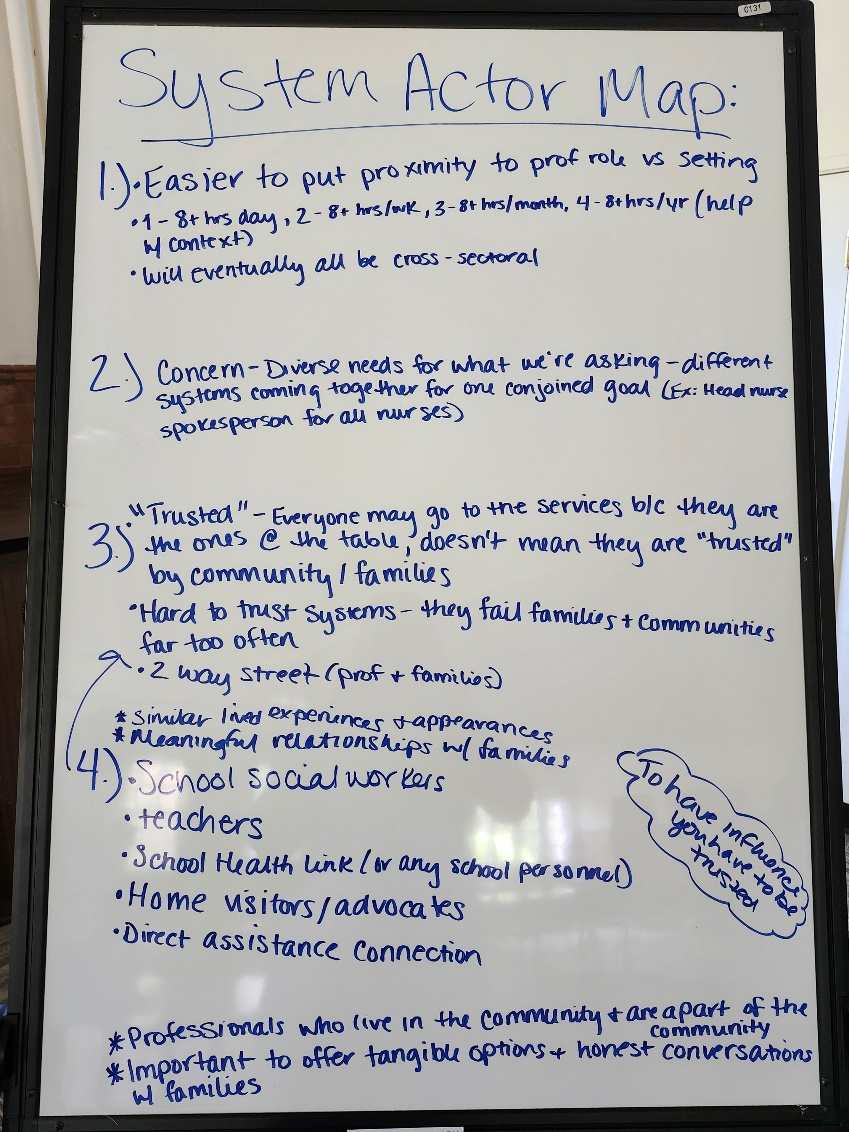 C131
System Actor Map:
1.) • Easier to put proximity to prof role vs setting
• 1 - 8+ hrs day, 2 - 8+ hrs/wk, 3 - 8+ hrs/month, 4 - 8+ hrs/yr (help
w/ context)
• Will eventually all be cross-sectoral
2.) Concern - Diverse needs for what we're asking - different
systems coming together for one conjoined goal (Ex: Head nurse
spokesperson for all nurses)
3.) • "Trusted" - Everyone may go to the services b/c they are
the ones @ the table, doesn't mean they are "trusted"
by community/families
• Hard to trust systems - they fail families + communities
far too often
• 2 way street (prof + families)
* Similar lived experiences + appearances
* Meaningful relationships w/ families
4.) • School social workers
• teachers
• School Health link (or any school personnel)
• Home visitors/advocates
• Direct assistance connection
To have influence
you have to be
trusted
* Professionals who live in the community + are a part of the
community
* Important to offer tangible options + honest conversations
w/ families